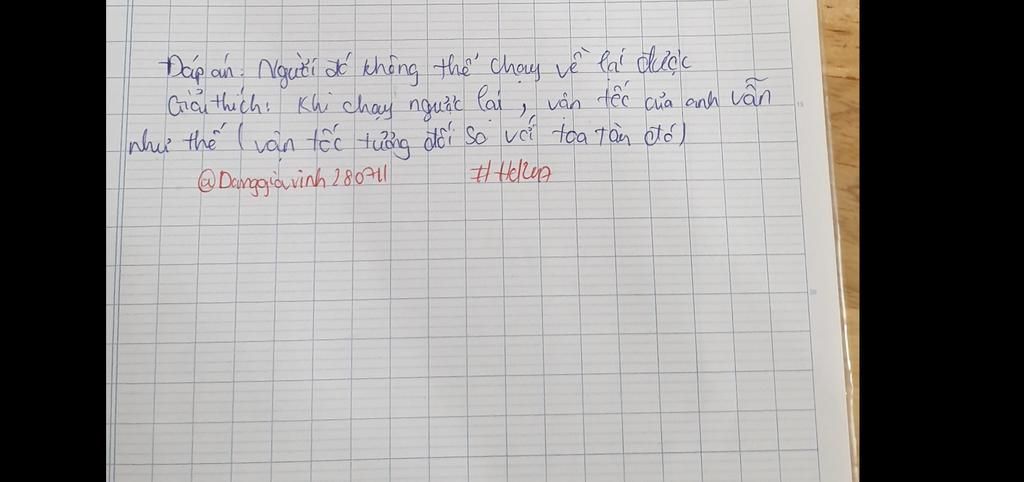 Đáp án: Người đó không thể chạy về lại được
Giải thích: Khi chạy ngược lại, vận tốc của anh vẫn
như thế (vận tốc tương đối so với toa tàn đó)
@Danggiavinh280711 #